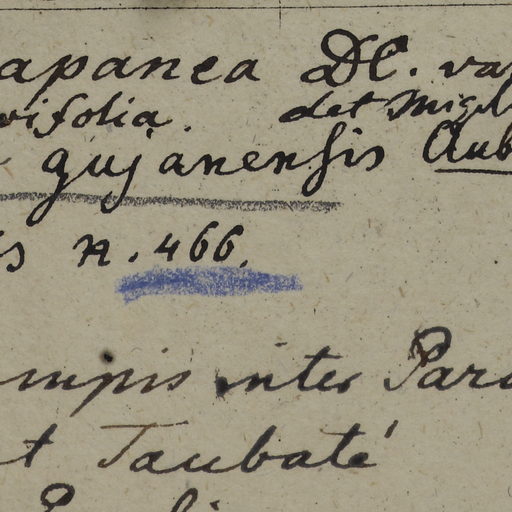 apanea DC. va
vifolia. det Miq
gujanensis Aub
s n. 466.
mpis inter Para
t Taubaté